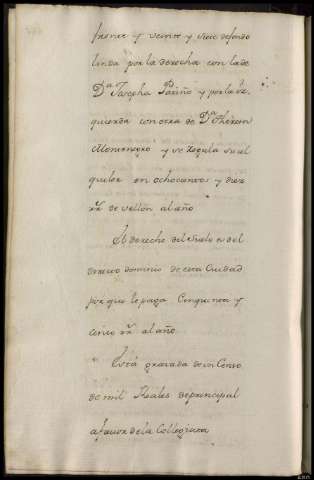 frente y veinte y siete de fondo
linda por la derecha con la de
D.ª Josepha Pariño y por la iz-
quierda con otra de D.ª Theresa
Montenegro y se regula su al
quiler en ochocientos y diez
rr.s de vellon al año
El derecho del suelo es del
directo dominio de esta Ciudad
por que le paga Cinquenta y
cinco rr.s al año
Està gravada de un Censo
de mil Reales de principal
a favor de la Collegiata